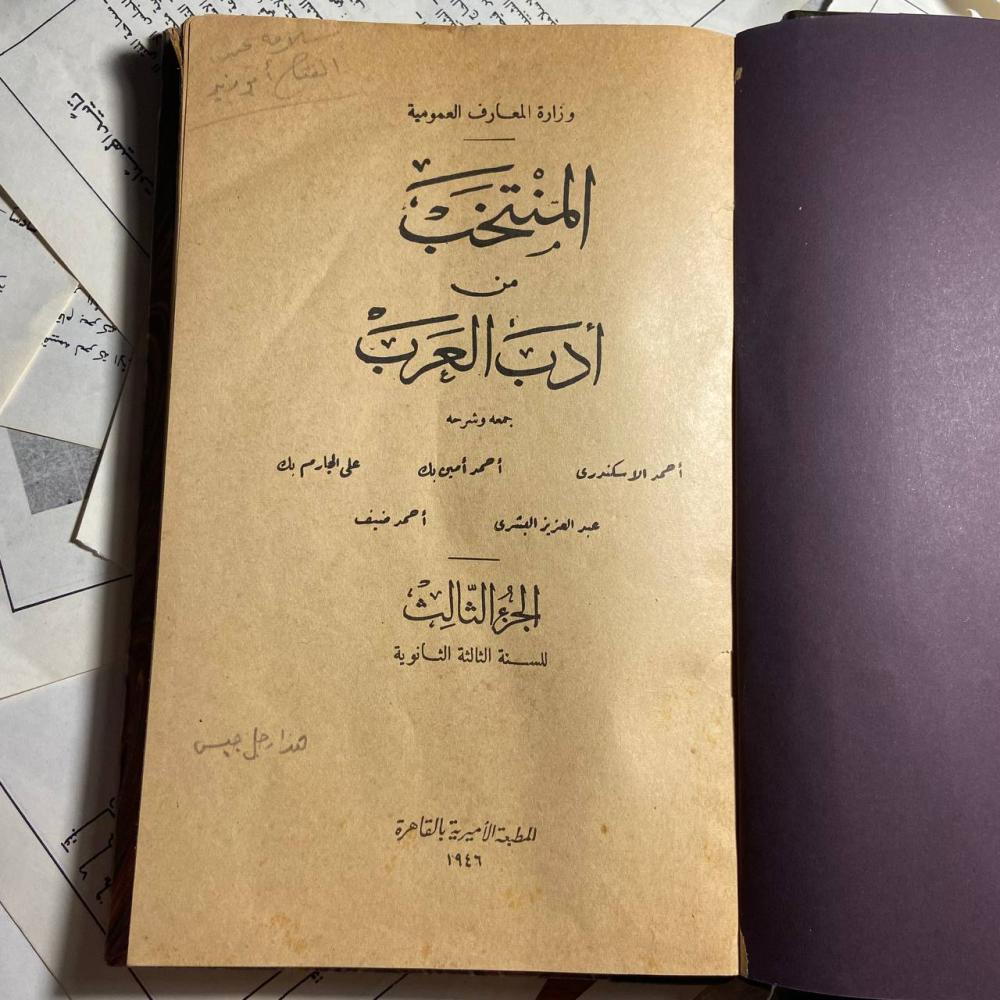 وزارة المعارف العمومية
المنْتخَبَ
من
أدبَ العَربْ
جمعه وشرحه
أحمد الاسكندرى أحمد أمين بك على الجارم بك
عبد العزيز البشرى أحمد ضيف
الجزءُ الثّالِث
للسنة الثالثة الثانوية
هذا رجل
المطبعة الأميرية بالقاهرة
١٩٤٦